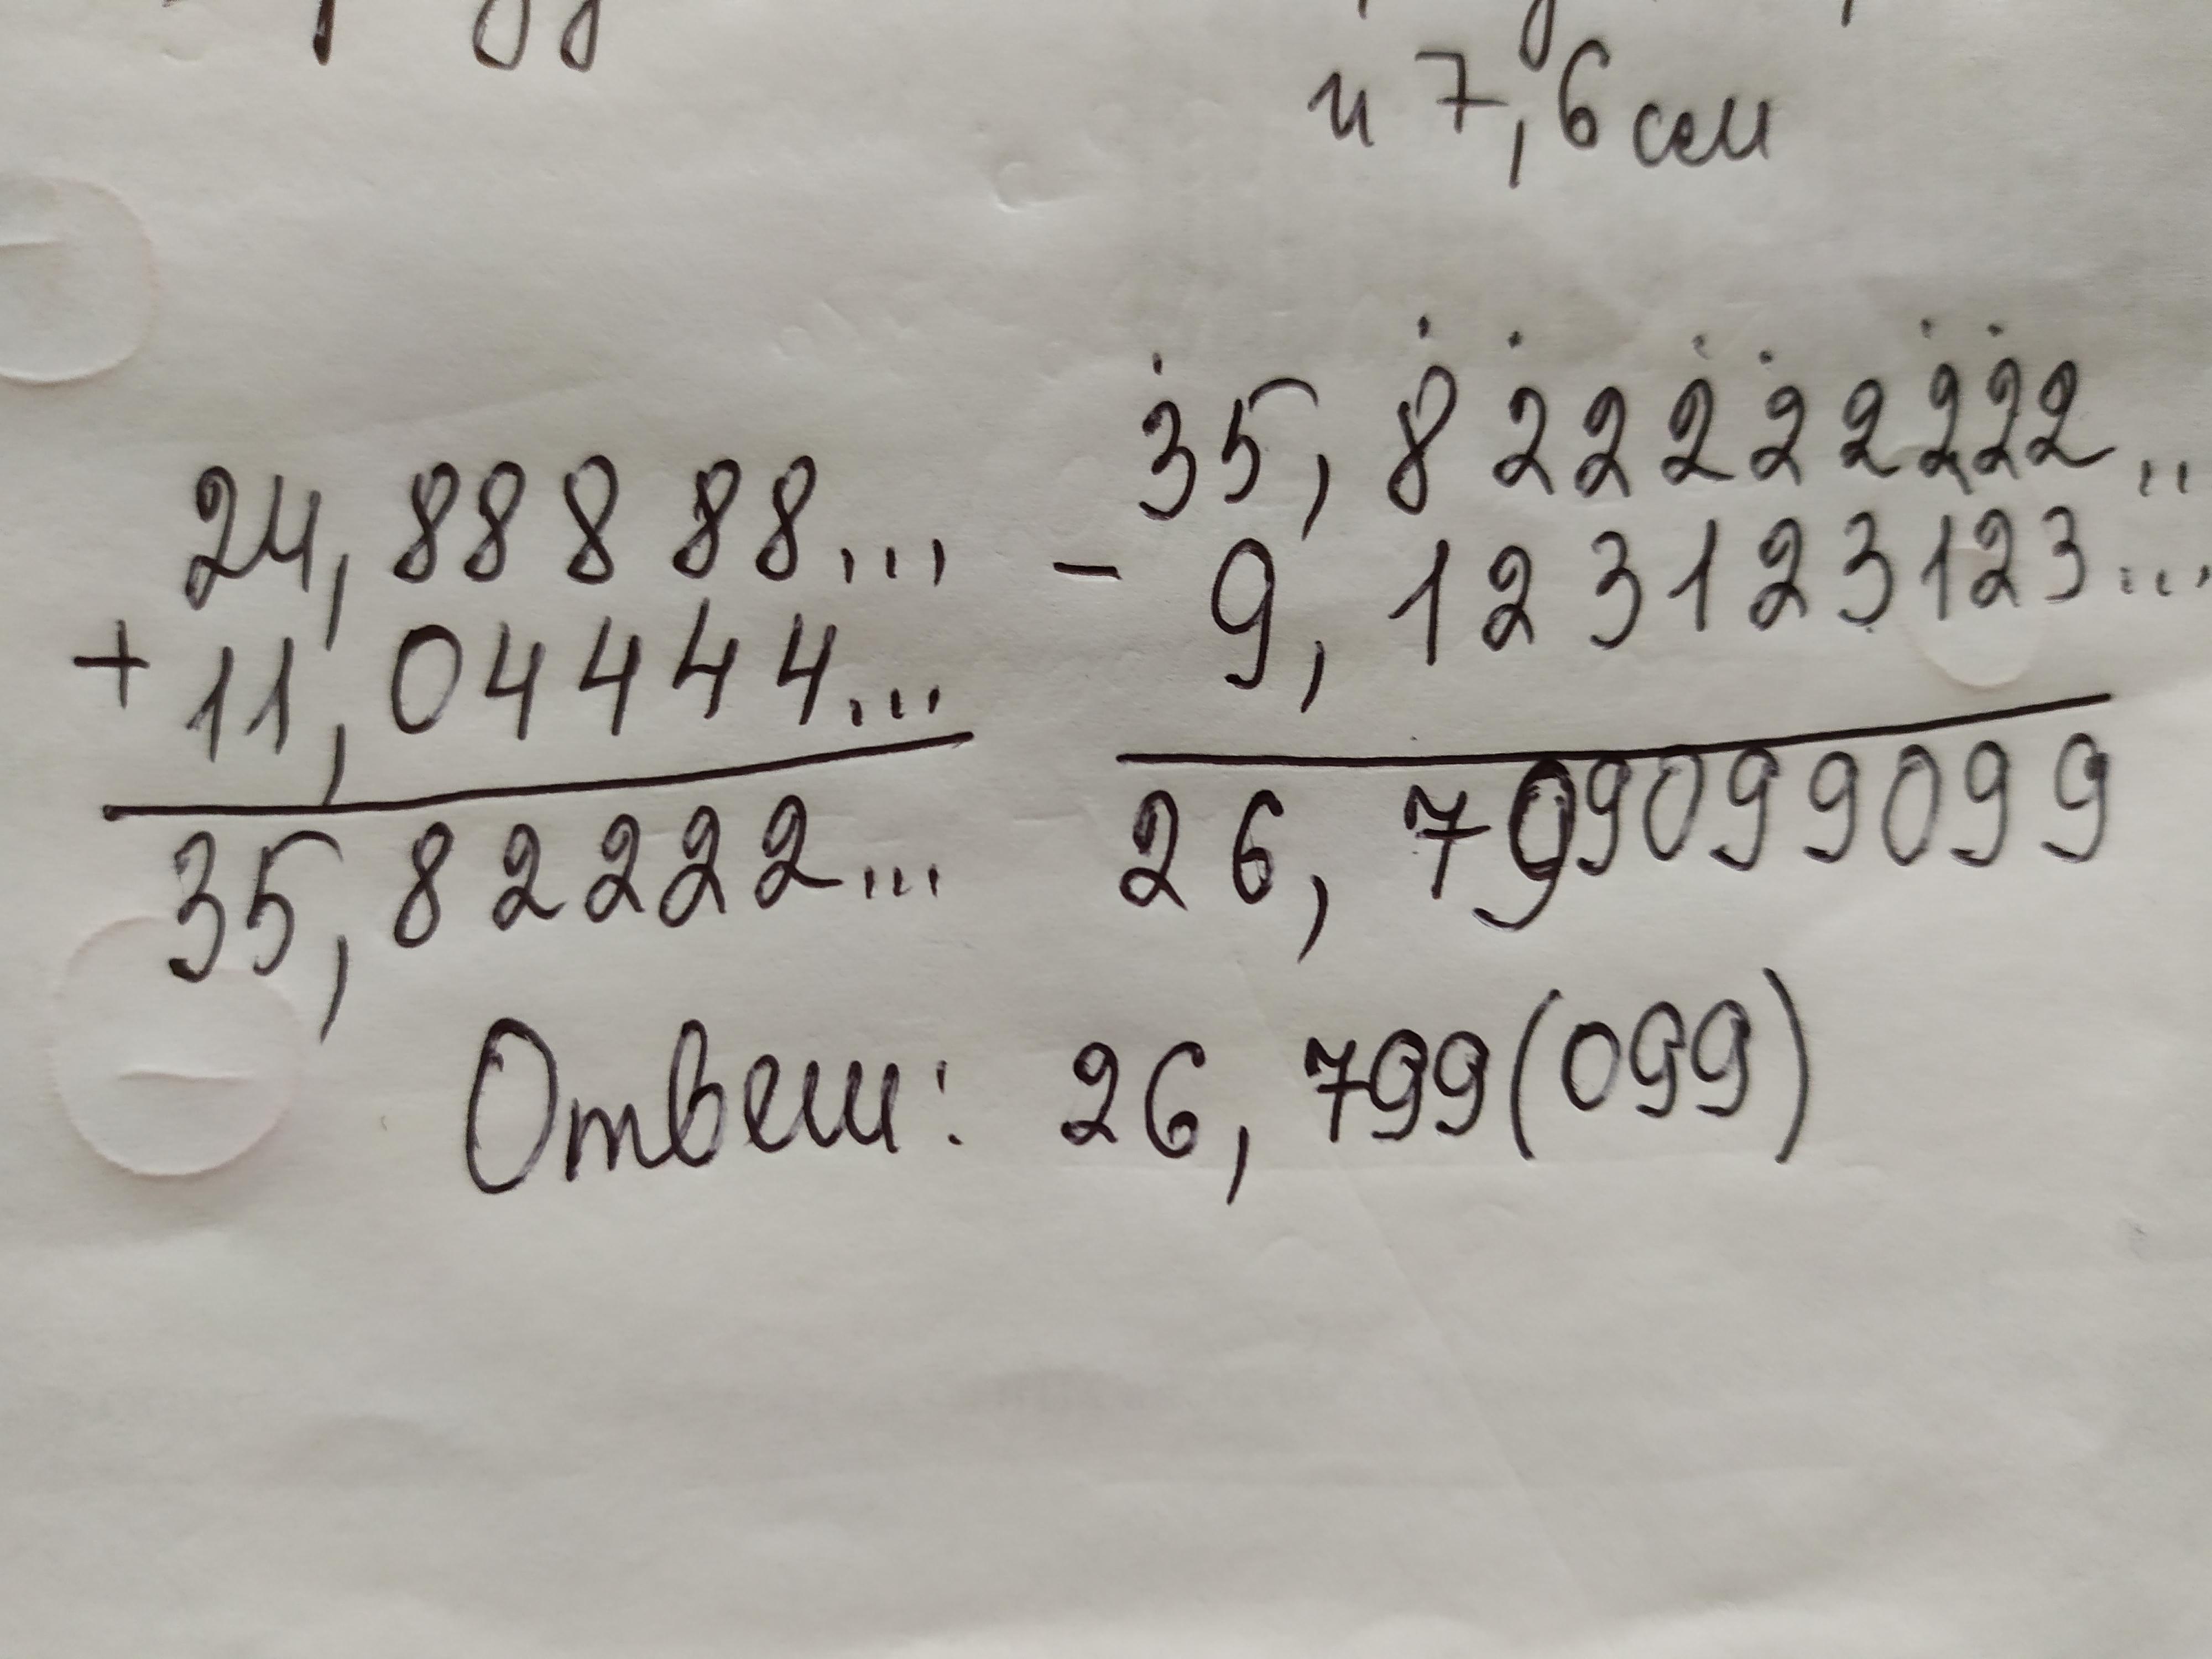 и 7,6 см
24,88888...
+ 11,04444...
35,82222...
- 35,822222222..
9,123123123...
26,799099099
Ответ: 26,799(099)